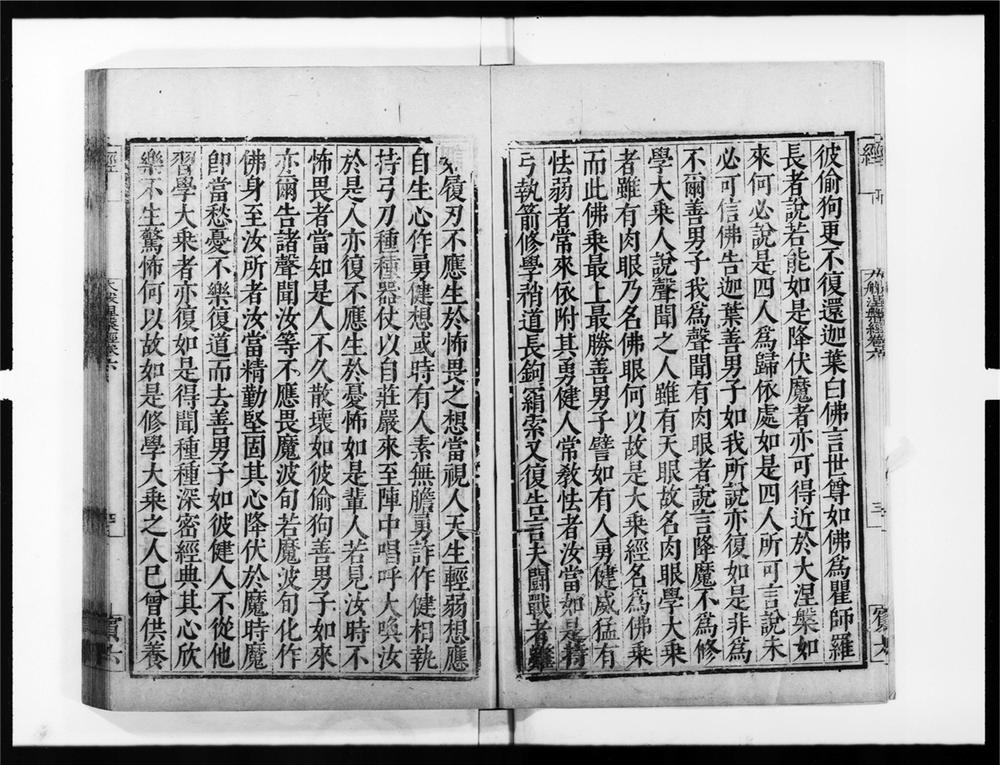 彼偷狗更不復還迦葉白佛言世尊如佛為瞿師羅
長者說若能如是降伏魔者亦可得近於大涅槃如
來何必說是四人為歸依處如是四人所可言說未
必可信佛告迦葉善男子如我所說亦復如是非為
不爾善男子我為聲聞有肉眼者說言降魔不為修
學大乘人說聲聞之人雖有天眼故名肉眼學大乘
者雖有肉眼乃名佛眼何以故是大乘經名為佛乘
而此佛乘最上最勝善男子譬如有人勇健威猛有
怯弱者常來依附其勇健人常教怯者汝當如是持
弓執箭修學矟道長鉤罥索又復告言夫鬪戰者雖
履刃不應生於怖畏之想當視人天生輕弱想應
自生心作勇健想或時有人素無膽勇詐作健相執
持弓刀種種器仗以自莊嚴來至陣中唱呼大喚汝
於是人亦復不應生於憂怖如是輩人若見汝時不
怖畏者當知是人不久散壞如彼偷狗善男子如來
亦爾告諸聲聞汝等不應畏魔波旬若魔波旬化作
佛身至汝所者汝當精勤堅固其心降伏於魔時魔
卽當愁憂不樂復道而去善男子如彼健人不從他
習學大乘者亦復如是得聞種種深密經典其心欣
樂不生驚怖何以故如是修學大乘之人已曾供養